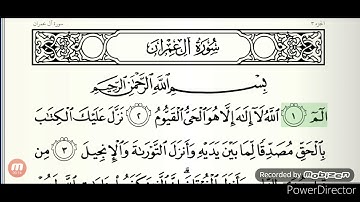 سورة آل عمران
الجزء ٣
سُورَةُ آلِ عِمْرَانَ
بِسْمِ اللَّهِ الرَّحْمَٰنِ الرَّحِيمِ
الٓمٓ ١ اللَّهُ لَآ إِلَٰهَ إِلَّا هُوَ الْحَيُّ الْقَيُّومُ ٢ نَزَّلَ عَلَيْكَ الْكِتَابَ
بِالْحَقِّ مُصَدِّقًا لِّمَا بَيْنَ يَدَيْهِ وَأَنزَلَ التَّوْرَاةَ وَالْإِنجِيلَ ٣ مِن
RECORDED WITH
Mobizen
PowerDirector